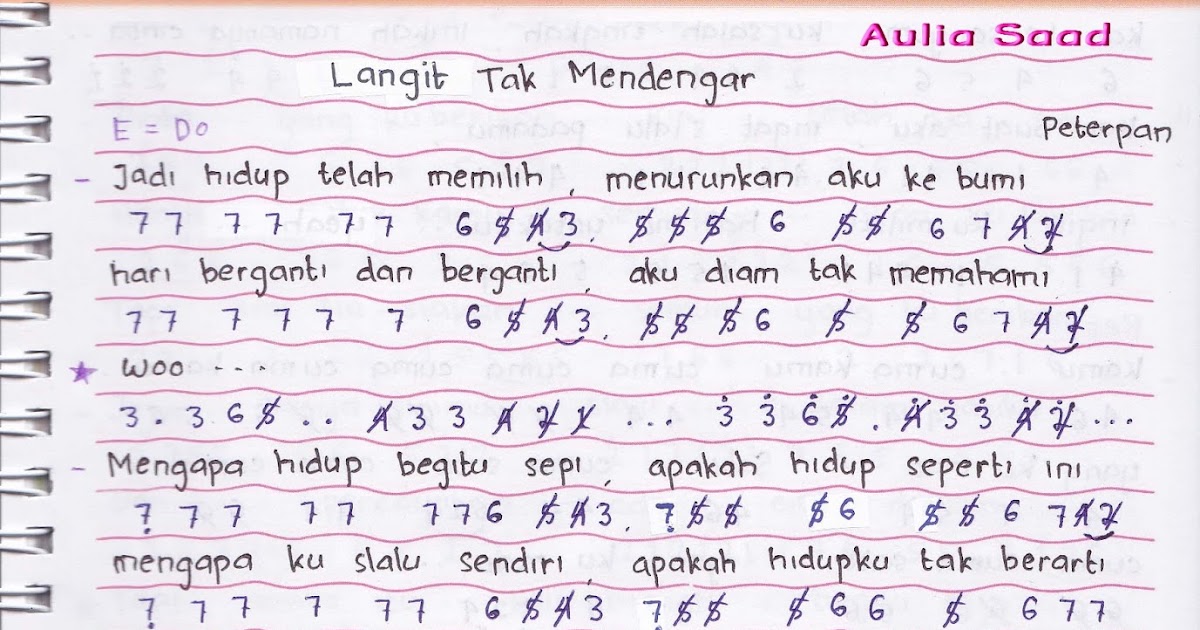 Aulia Saad
Langit Tak Mendengar
E = Do
Peterpan
- Jadi hidup telah memilih , menurunkan aku ke bumi
7 7 7 7 7 7 6 5̸ 4̸ 3 . 5̸ 5̸ 5̸ 6 5̸ 5̸ 6 7 4̸ 2̸
hari berganti dan berganti , aku diam tak memahami
7 7 7 7 7 7 6 5̸ 4̸ 3 . 5̸ 5̸ 5̸ 6 5̸ 5̸ 6 7 4̸ 2̸
★ woo - - -
3 . 3 6 5̸ . . 4̸ 3 3 4̸ 2̸ 1̸ . . . 3̇ 3̇ 6̇ 5̸̇ . 4̸̇ 3̇ 3̇ 4̸̇ 2̸̇ . .
- Mengapa hidup begitu sepi , apakah hidup seperti ini
7̣ 7 7 7 7 7 7 6 5̸ 4̸ 3 . 7̣ 5̸ 5̸ 5̸ 6 5̸ 5̸ 6 7 4̸ 2̸
mengapa ku slalu sendiri , apakah hidupku tak berarti
7̣ 7 7 7 7 7 6 5̸ 4̸ 3 7̣ 5̸ 5̸ 5̸ 6 6 5̸ 6 7 7